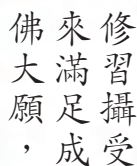 修習攝受
來滿足成
佛大願，